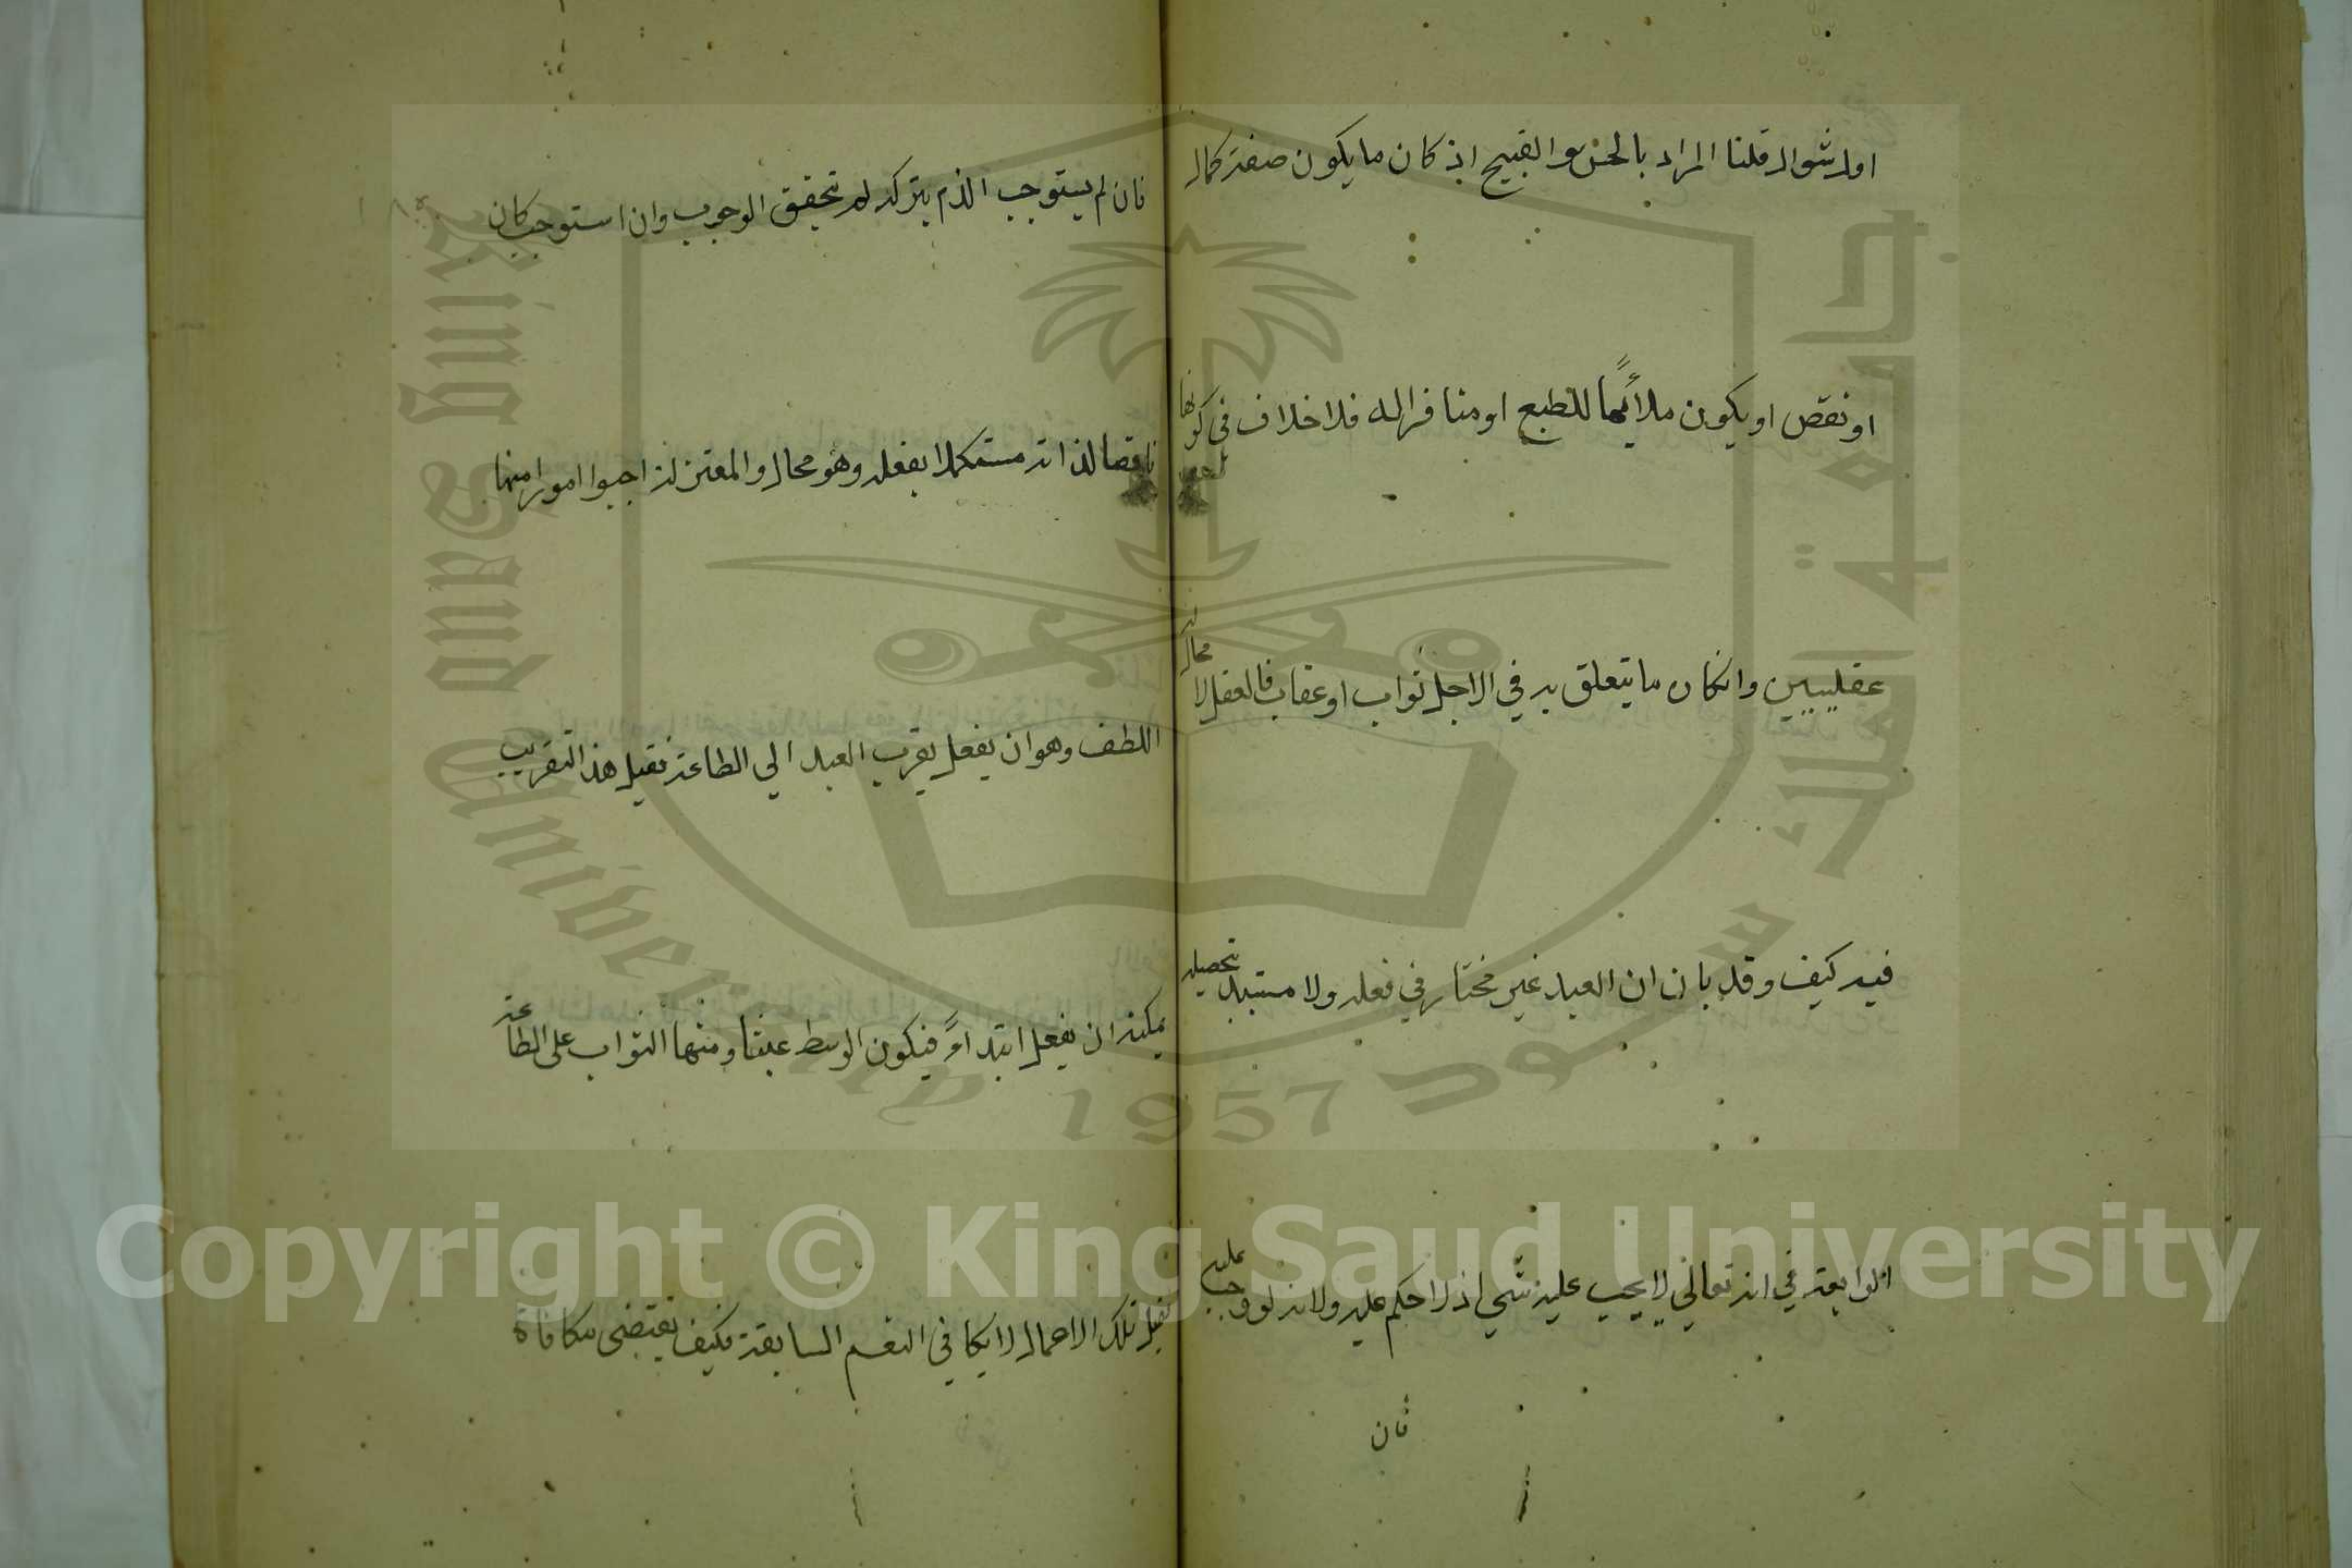 او لشوال قلنا المراد بالحسن والقبيح ان كان ما يكون صفة كمال
او نقص او يكون ملائمًا للطبع او منافرا له فلا خلاف في كونها
عقليين وان كان ما يتعلق به في الاجل ثواب او عقاب فالعقل لا مجال له
فيه كيف وقد بان ان العبد غير مختار في فعله ولا مستبد تحصيله
الرابعة في انه تعالي لا يجب عليه شي اذ لا حكم عليه ولانه لو وجب عليه
فان
فان لم يستوجب الذم بتركه لم تحقق الوجوب وان استوجب كان
ناقصا لذاته مستكملا بفعله وهو محال والمعتزلة اجبوا امورا منها
اللطف وهو ان يفعل يقرب العبد الي الطاعة فقيل هذا التقريب
يمكنه ان يفعل ابتداءً فيكون الوسط عبثا ومنها الثواب على الطاعة
فقيل تلك الاعمال لا يكافي النعم السابقة فكيف يقتضى مكافاة
جامعة الملك سعود
King Saud University
1957
Copyright © King Saud University